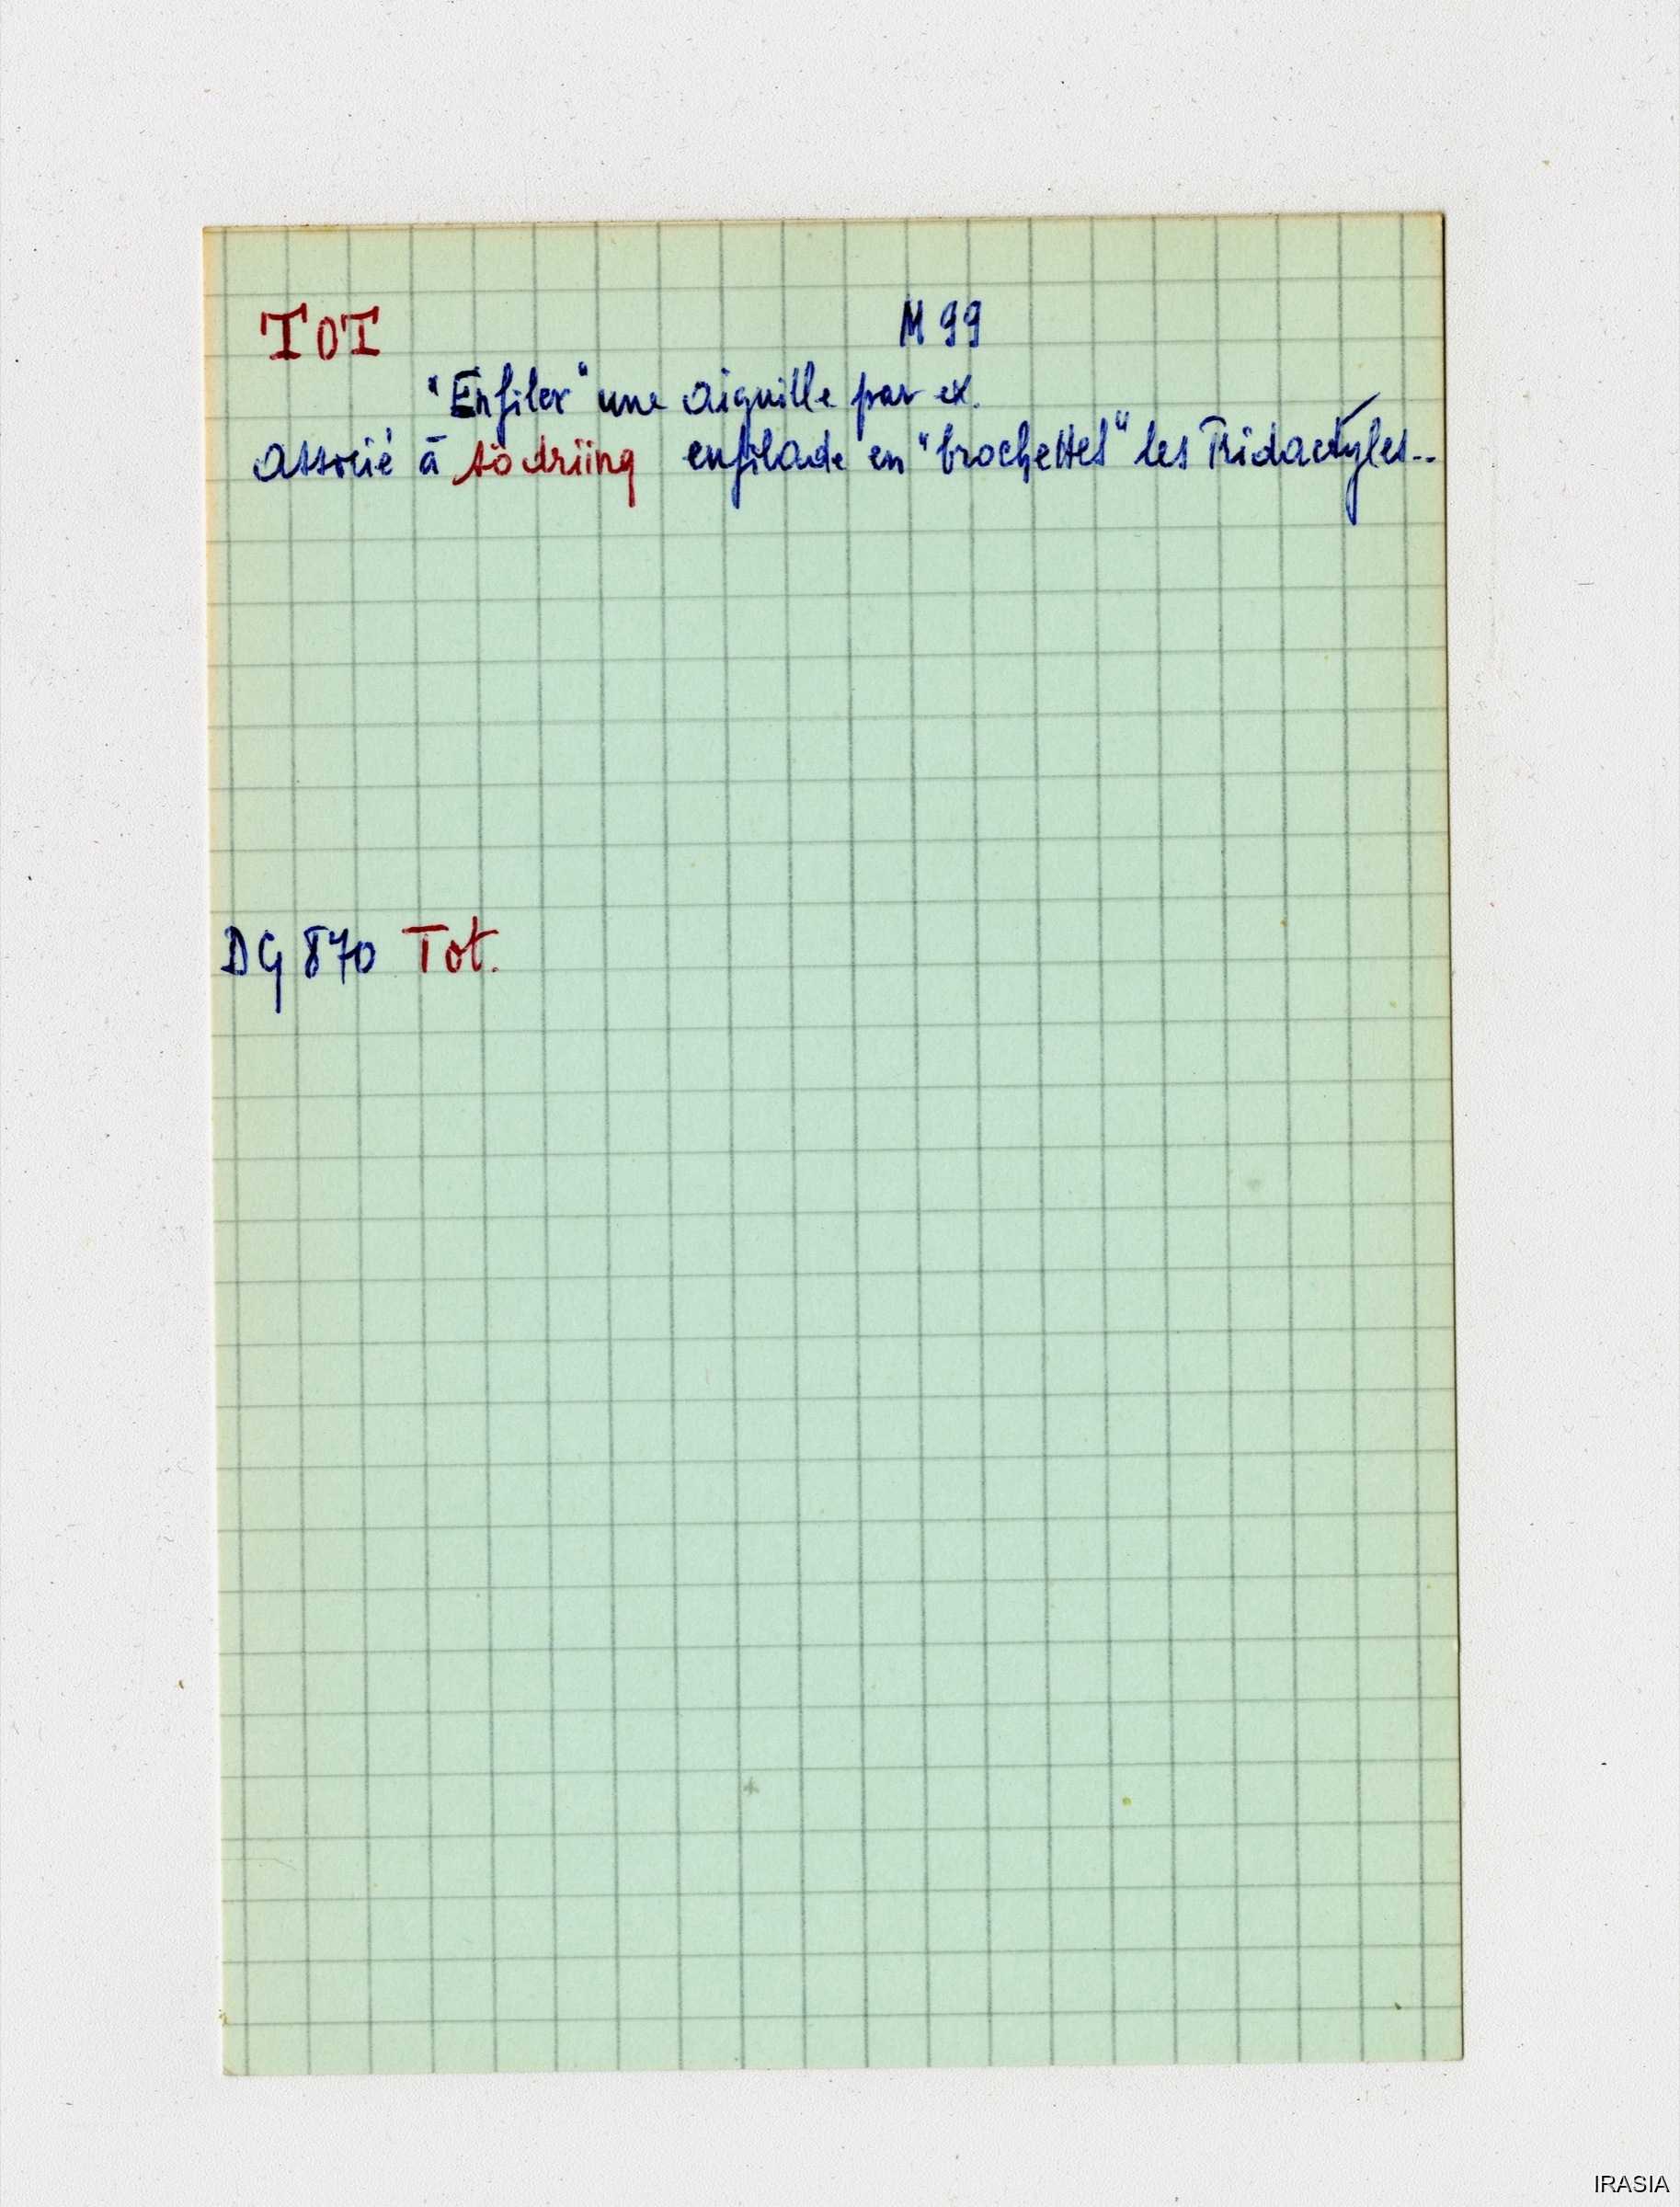 TOT M 99
"Enfiler" une aiguille par ex.
associé à södriing enfilade en "brochettes" les Tridactyles..
DG 870 Tot.
IRASIA